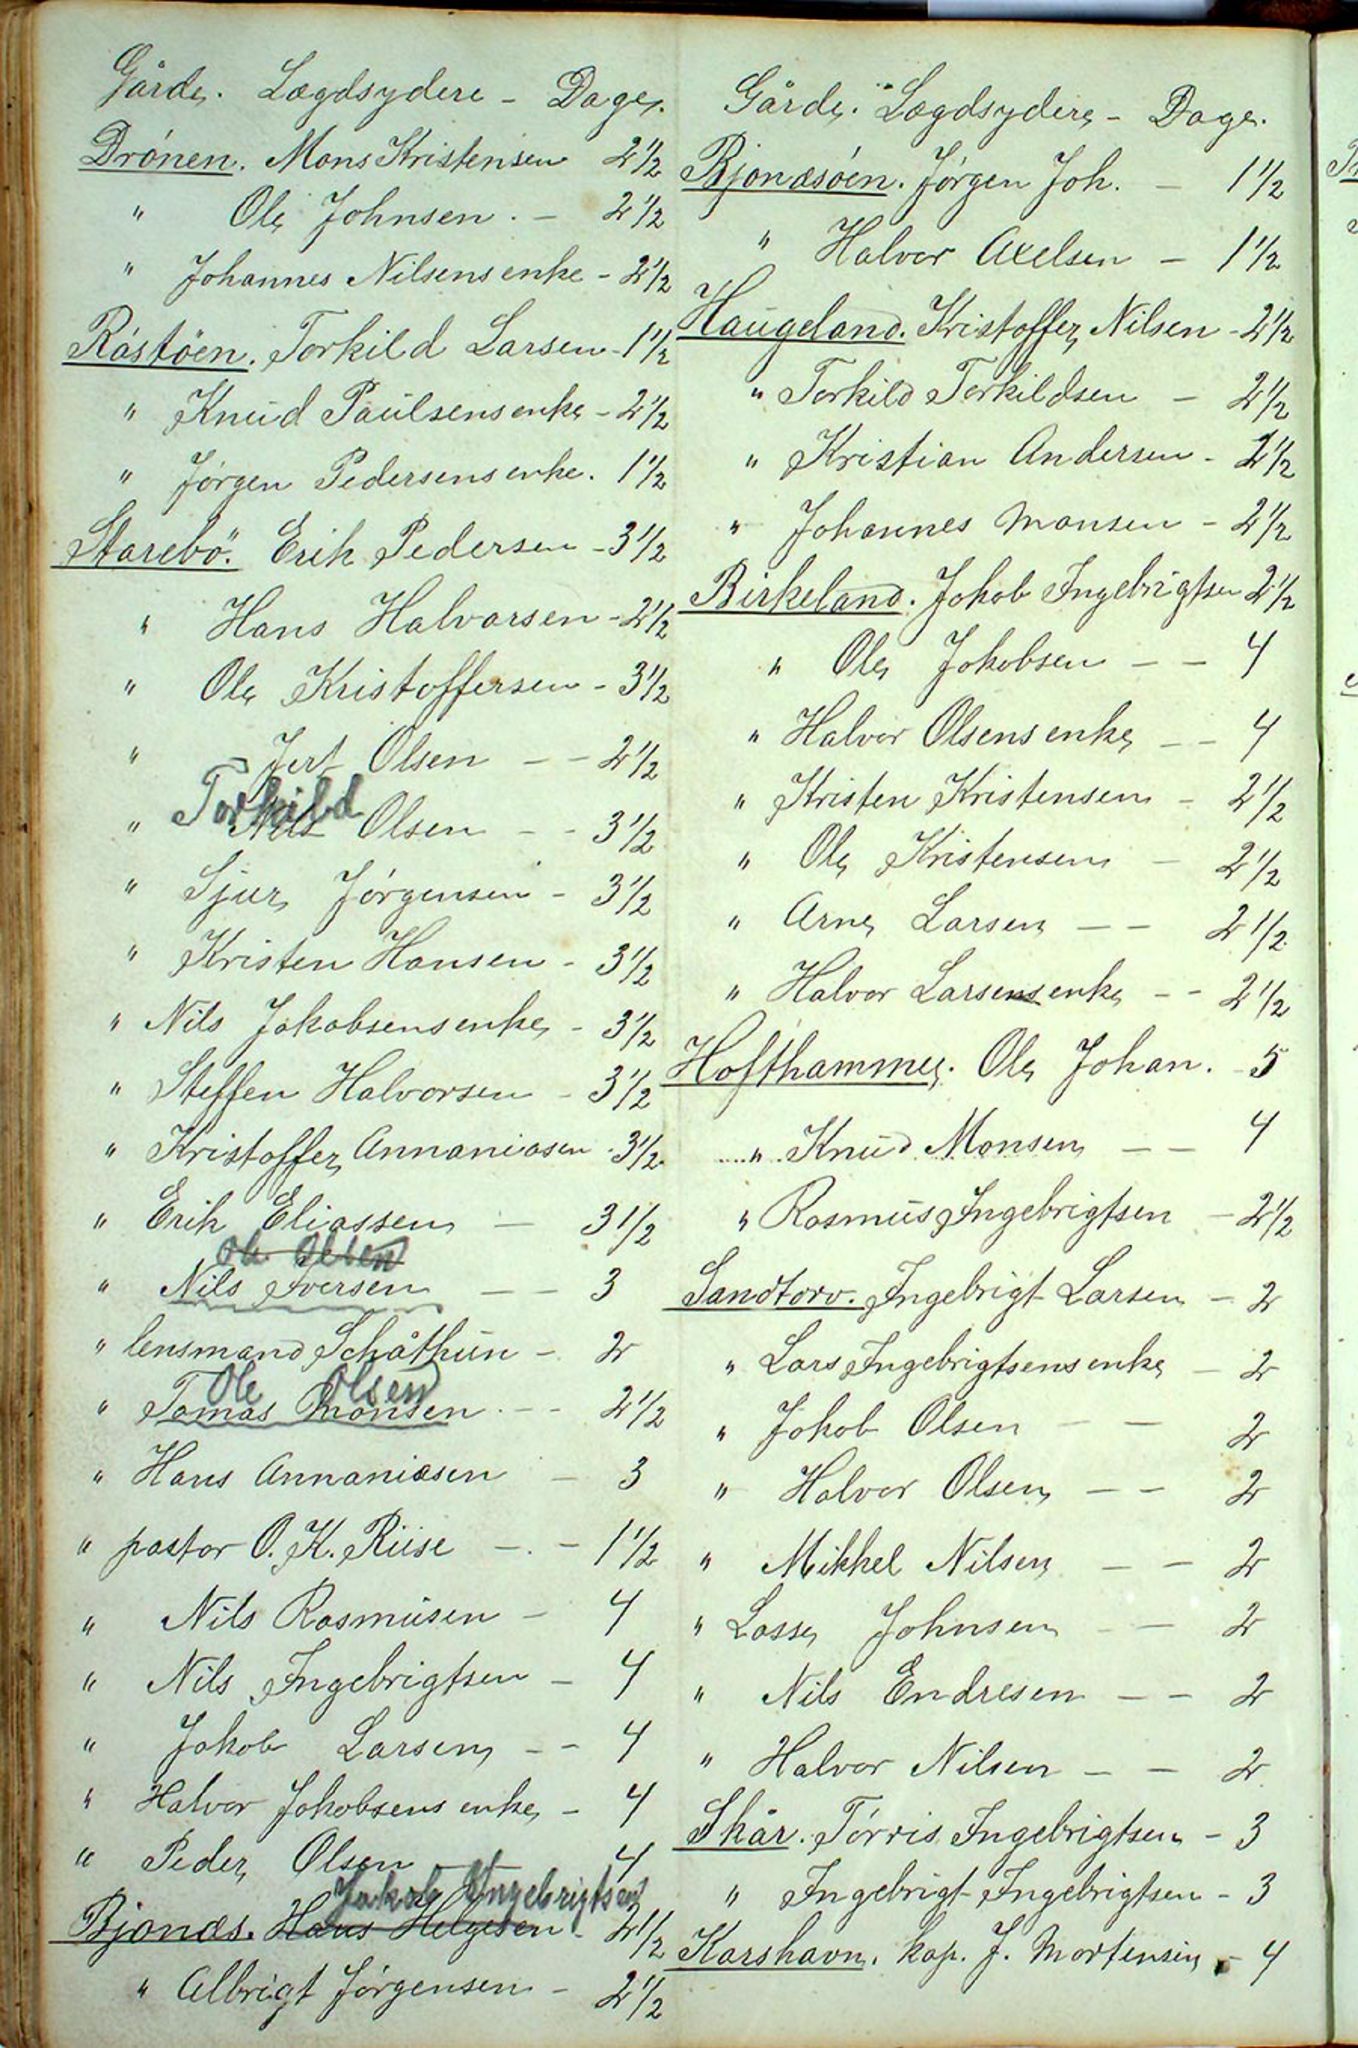 Gårde. Lægdsydere - Dage.
Drónen. Mons Kristensen 2 1/2
" Ole Johnsen. - 2 1/2
" Johannes Nilsens enke - 2 1/2
Róstöen. Torkild Larsen - 1 1/2
" Knud Paulsens enke - 2 1/2
" Jórgen Pedersens enke. 1 1/2
Starebö. Erik Pedersen - 3 1/2
" Hans Halvorsen - 2 1/2
" Ole Kristoffersen - 3 1/2
" Jert Olsen - - 2 1/2
Torkild
" Nils Olsen - - 3 1/2
" Sjur Jórgensen - 3 1/2
" Kristen Hansen - 3 1/2
" Nils Jakobsens enke - 3 1/2
" Steffen Halvorsen - 3 1/2
" Kristoffer Annaniasen - 3 1/2
" Erik Eliassen - 3 1/2
Ole Olsen
" Nils Iversen - - 3
" lensmand Schåthun - 2
Ole Olsen
" Tomas Monsen - - 2 1/2
" Hans Annaniasen - 3
" pastor O. K. Riise - . - 1 1/2
" Nils Rasmusen - 4
" Nils Ingebrigtsen - 4
" Jakob Larsen - - 4
" Halvor Jakobsens enke - 4
" Peder Olsen - - 4
Jakob Ingebrigtsen
Bjonæs. Hans Helgesen - 2 1/2
" Albrigt Jórgensen - 2 1/2
Gårde. Lægdsydere - Dage.
Bjonæsóen. Jórgen Joh. - 1 1/2
" Halvor Axelsen - 1 1/2
Haugeland. Kristoffer Nilsen - 2 1/2
" Torkild Torkildsen - 2 1/2
" Kristian Andersen - 2 1/2
" Johannes Monsen - 2 1/2
Birkeland. Jakob Ingebrigtsen 2 1/2
" Ole Jakobsen - - 4
" Halvor Olsens enke - - 4
" Kristen Kristensen - 2 1/2
" Ole Kristensen - 2 1/2
" Arne Larsen - - 2 1/2
" Halvor Larsens enke - - 2 1/2
Hofthammer. Ole Johan. - 5
" Knud Monsen - - 4
" Rasmus Ingebrigtsen - 2 1/2
Sandtorv. Ingebrigt Larsen - 2
" Lars Ingebrigtsens enke - 2
" Jakob Olsen - - 2
" Halvor Olsen - - 2
" Mikkel Nilsen - - 2
" Lasse Johnsen - - 2
" Nils Endresen - - 2
" Halvor Nilsen - - 2
Skår. Tórris Ingebrigtsen - 3
" Ingebrigt Ingebrigtsen - 3
Korshavn. kap. J. Mortensen - 4